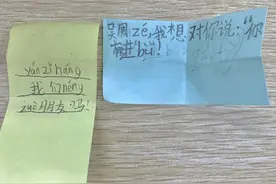 yán zi háng
我们néng
zuò朋友吗!
吴周zé,我想对你说:“你
有进bù!